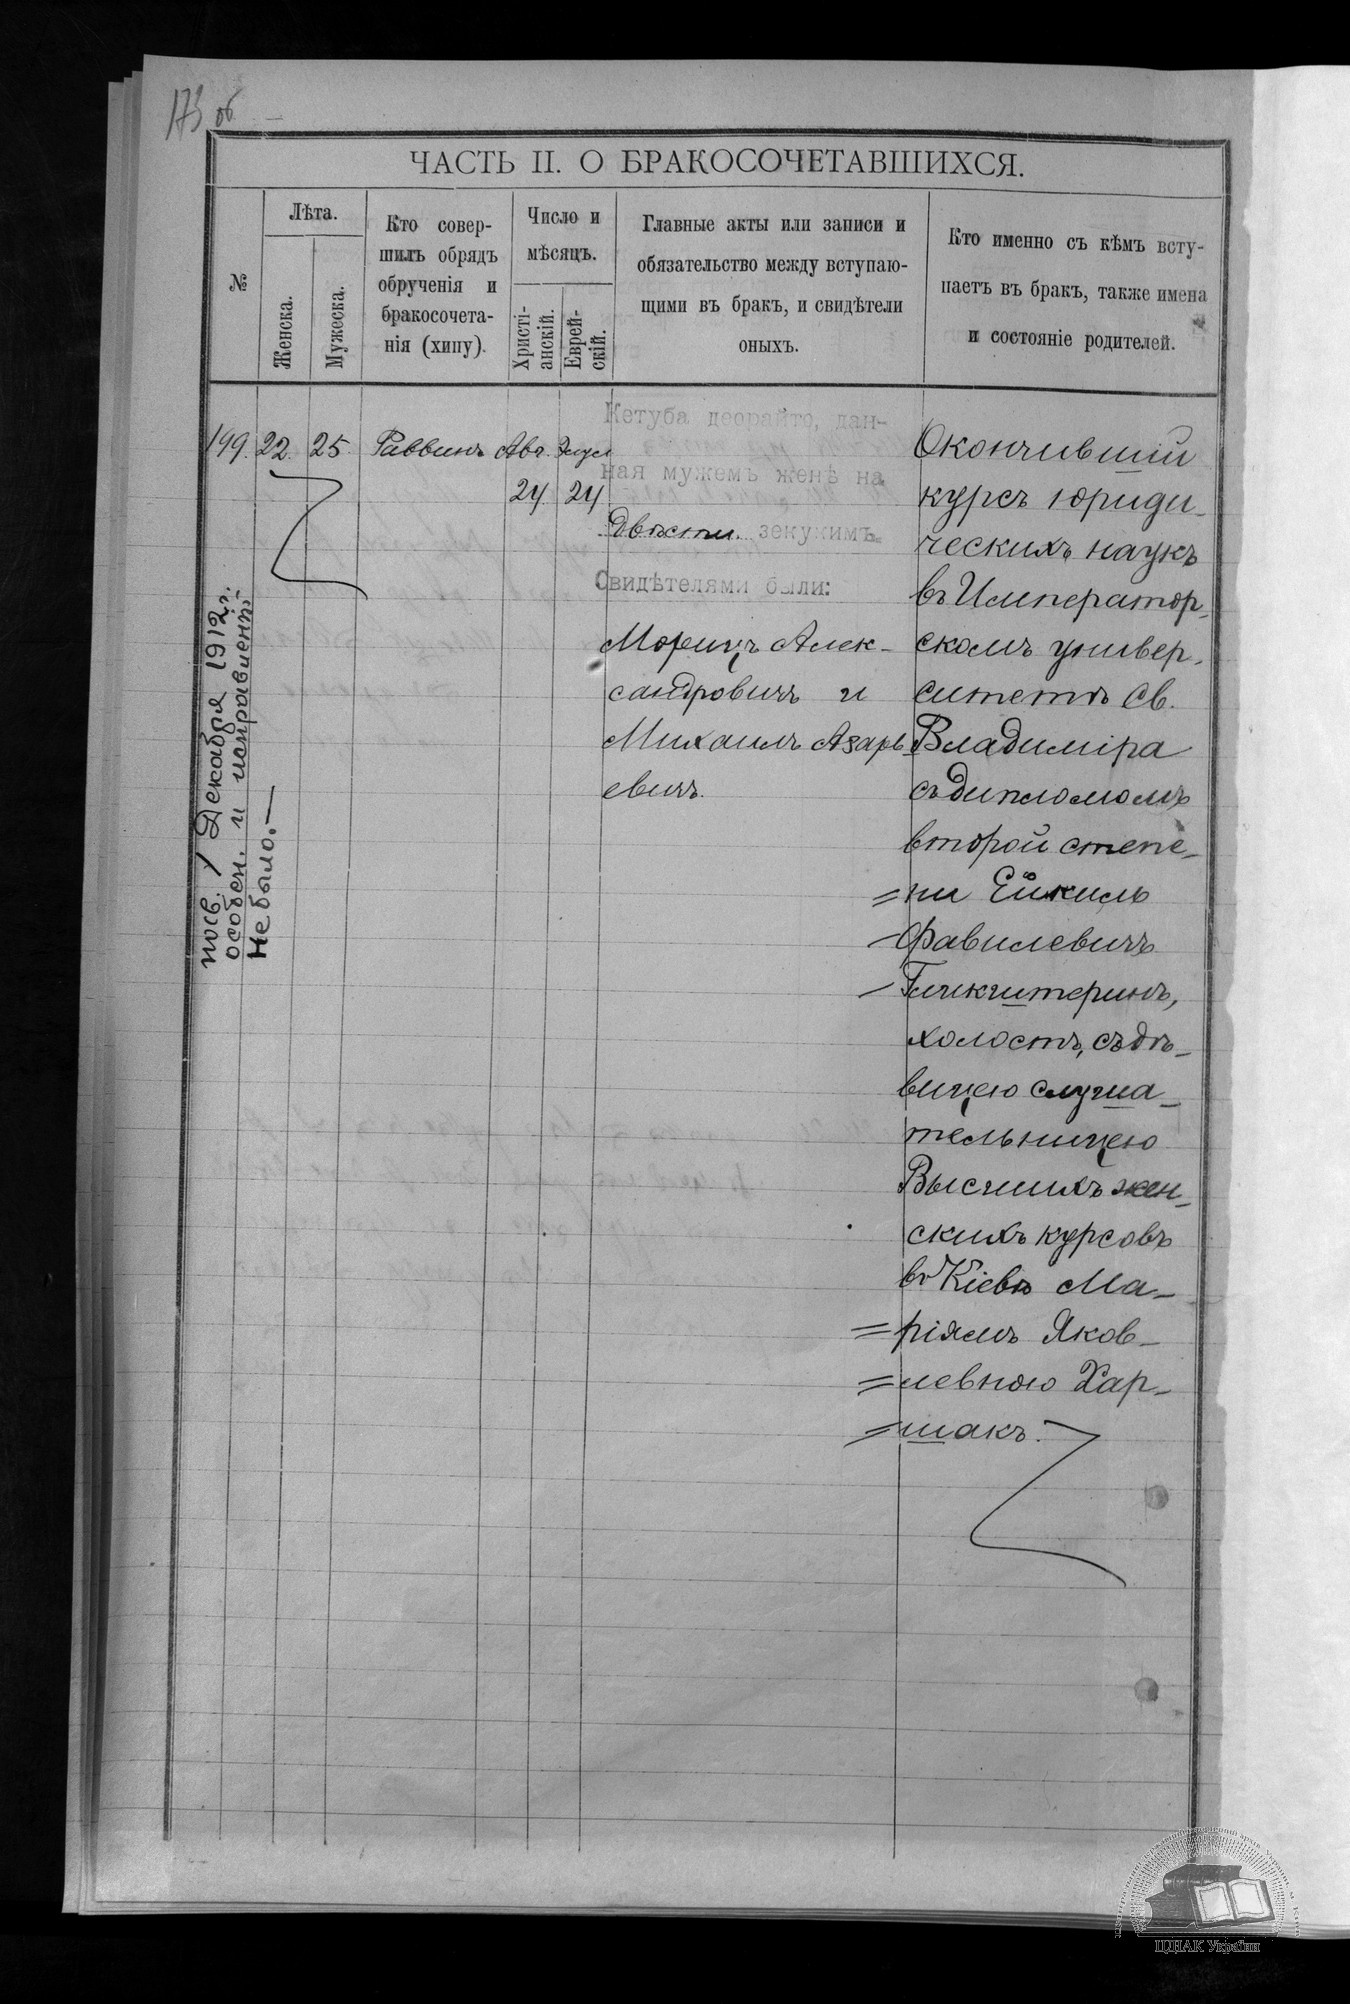 173 об
ЧАСТЬ II. О БРАКОСОЧЕТАВШИХСЯ.
№
Лѣта.
Женска.
Мужеска.
Кто совер-
шилъ обрядъ
обрученія и
бракосочета-
нія (хипу).
Число и
мѣсяцъ.
Христі-
анскій.
Еврей-
скій.
Главные акты или записи и
обязательство между вступаю-
щими въ бракъ, и свидѣтели
оныхъ.
Кто именно съ кѣмъ всту-
паетъ въ бракъ, также имена
и состояніе родителей.
199. 22. 25 Раввинъ Авг. Элул
24 24
Кетуба деорайто, дан-
ная мужемъ женѣ на
Двѣсти. зекукимъ.
Свидѣтелями были:
Морицъ Алек-
сандровичъ и
Михаилъ Азарь-
евичъ.
Окончившій
курсъ юриди-
ческихъ наукъ
въ Император-
скомъ универ-
ситетѣ Св.
Владиміра
съ дипломомъ
второй степе-
ни Ейкиль
Фавилевичъ
Гликштернъ,
холостъ, съ дѣ-
вицею слуша-
тельницею
Высшихъ жен-
скихъ курсовъ
въ Кіевѣ Ма-
ріямъ Яков-
левною Хар-
шакъ.
1 Декабря 1912 г.
особен. и исправленій
не было.—
ЦДІАК України